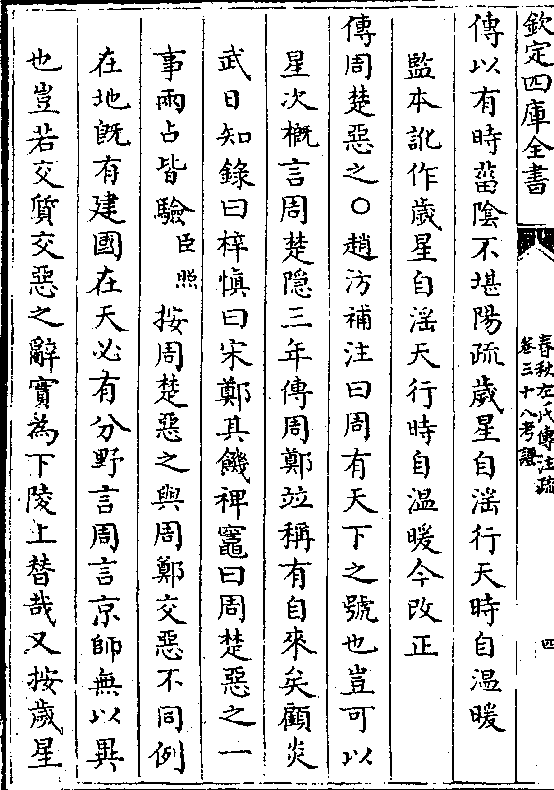 欽定四庫全書
春秋左氏傳注疏
卷三十八考證
四
傳以有時菑陰不堪陽疏歲星自滛行天時自温暖
監本訛作歲星自滛天行時自温暖今改正
傳周楚惡之○趙汸補注曰周有天下之號也豈可以
星次概言周楚隱三年傳周鄭竝稱有自來矣顧炎
武日知錄曰梓慎曰宋鄭其饑裨竈曰周楚惡之一
事兩占皆驗臣照按周楚惡之與周鄭交惡不同例
在地既有建國在天必有分野言周言京師無以異
也豈若交質交惡之辭實為下陵上替哉又按歲星